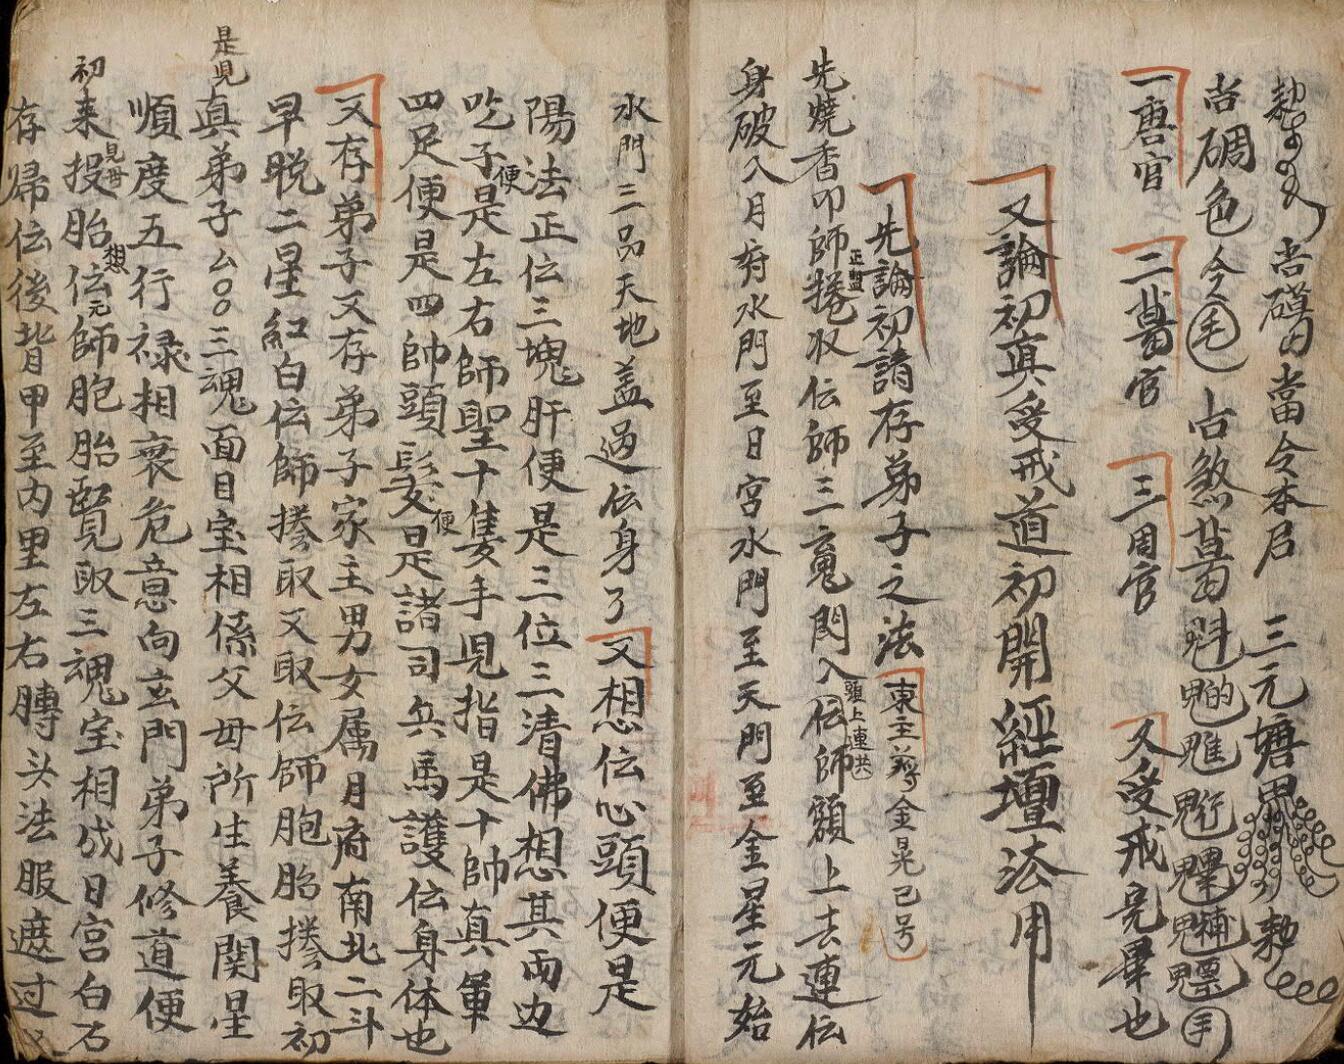 勅 岩磠當令本启 三元塘 勅
岩碉色令毛 占煞葛魁
一唐官 二葛官 三周官 又受戒完畢也
又論初真受戒道初開經壇法用
先論初請存弟子之法 東主 金晃已号
先燒香叩師正盟捲収伝師三䰟閃入伝師頭上連共額上去連伝
身破入月府水門至日宮水門至天門至金星元始
水門三品天地盖過伝身了 又想伝心頭便是
陽法正位三塊肝便是三位三清佛想其両边
吃子便是左右師聖十隻手児指是十帥真軍
四足便是四帥頭髪便是諸司兵馬護伝身体也
又存弟子又存弟子家主男女属月府南北二斗
早晚二星紅白伝師捲取又取伝師胞胎捲取初
是児真弟子厶〇〇三魂面目宝相係父母所生養関星
順度五行禄相衰危意向玄門弟子修道便
初来投見母胎伝想元師胞胎覧取三魂宝相成日宮白石
存帰伝後背甲至内里左右膊头法服遮过又